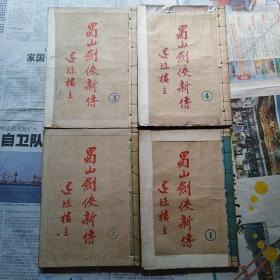 蜀山劍俠新傳
還珠樓主
③
蜀山劍俠新傳
還珠樓主
④
蜀山劍俠新傳
還珠樓主
②
蜀山劍俠新傳
還珠樓主
①
家国
自卫队